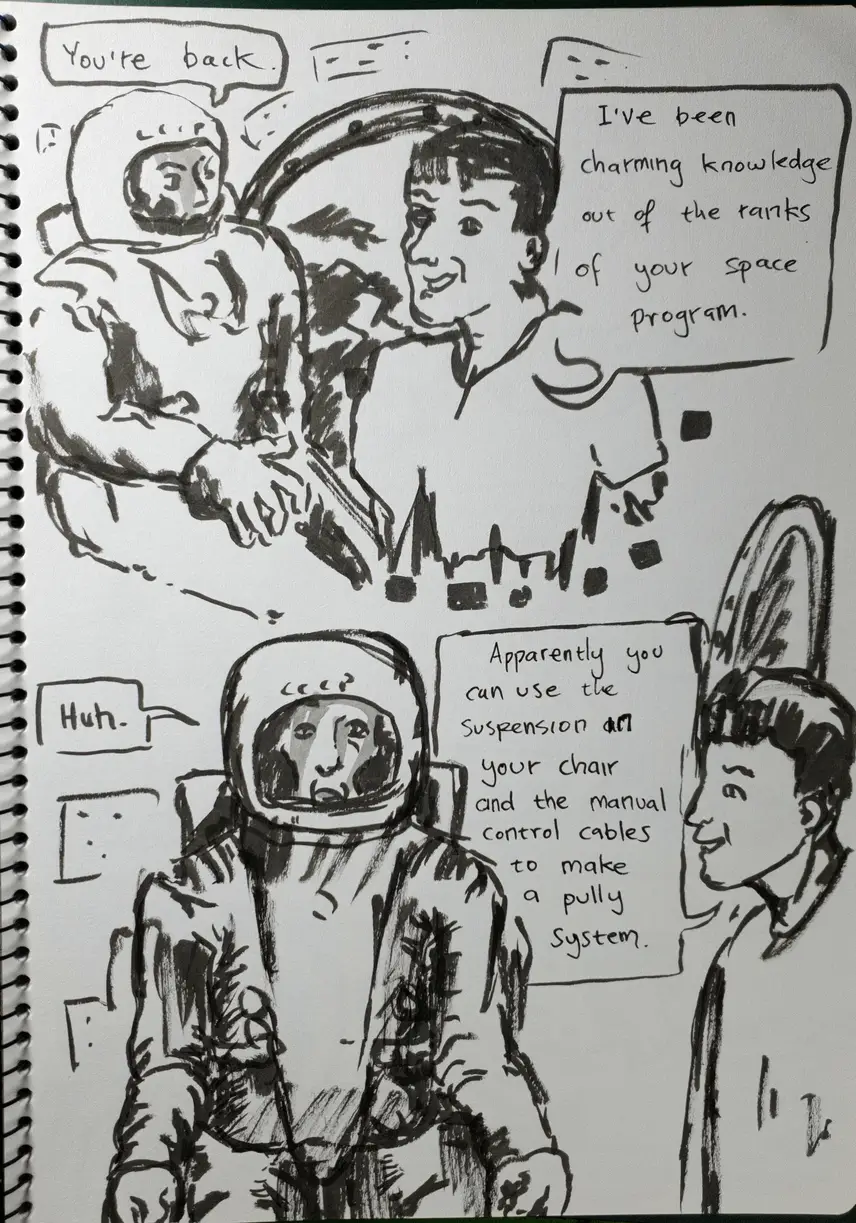 You're back.
I've been
charming knowledge
out of the ranks
of your space
program.
Huh.
Apparently you
can use the
suspension on
your chair
and the manual
control cables
to make
a pully
system.
CCCP
CCCP